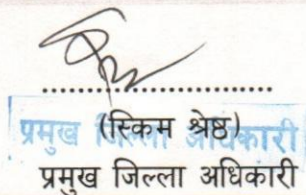 (स्किम श्रेष्ठ)
प्रमुख जिल्ला अधिकारी
प्रमुख जिल्ला अधिकारी